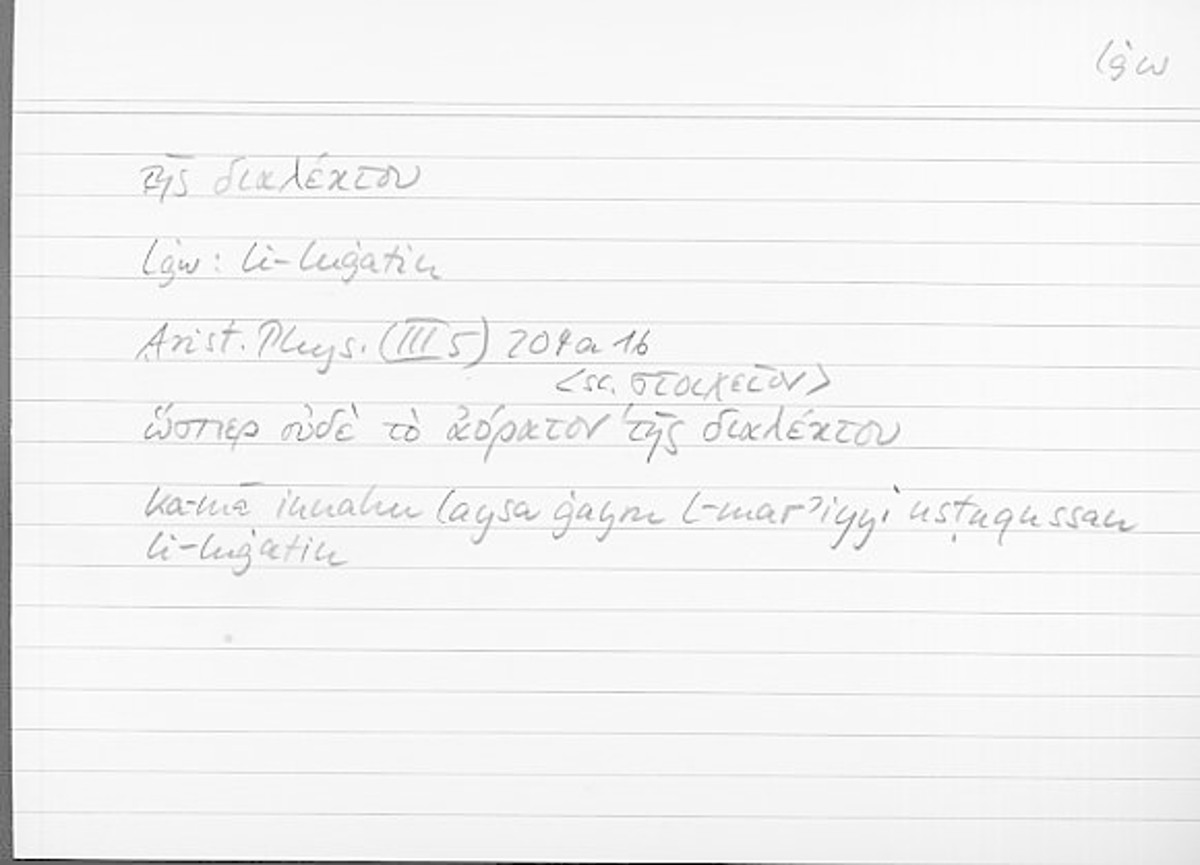 lġw
τῆς διαλέκτου
lġw: li-luġatin
Arist. Phys. (III 5) 204a16
<sc. στοιχεῖον>
ὥσπερ οὐδὲ τὸ ἀόρατον τῆς διαλέκτου
ka-mā innahu laysa ġayru l-marʾiyyi usṭuqussan
li-luġatin